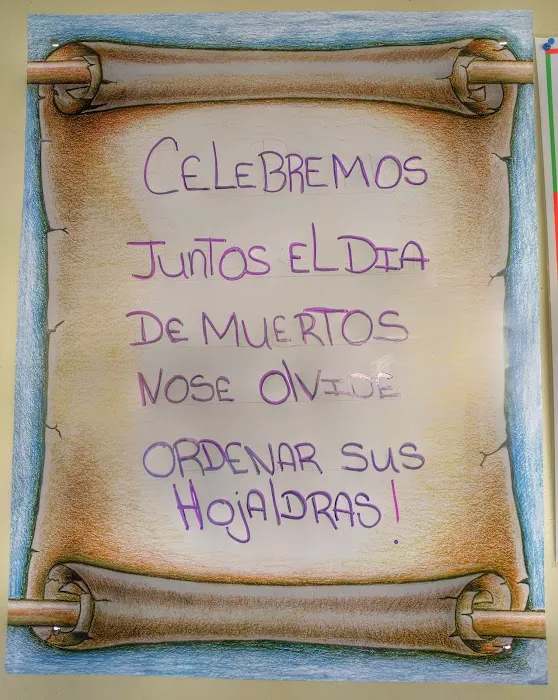 CELEBREMOS
JUNTOS EL DIA
DE MUERTOS
NOSE OLVIDE
ORDENAR SUS
HOJALDRAS!